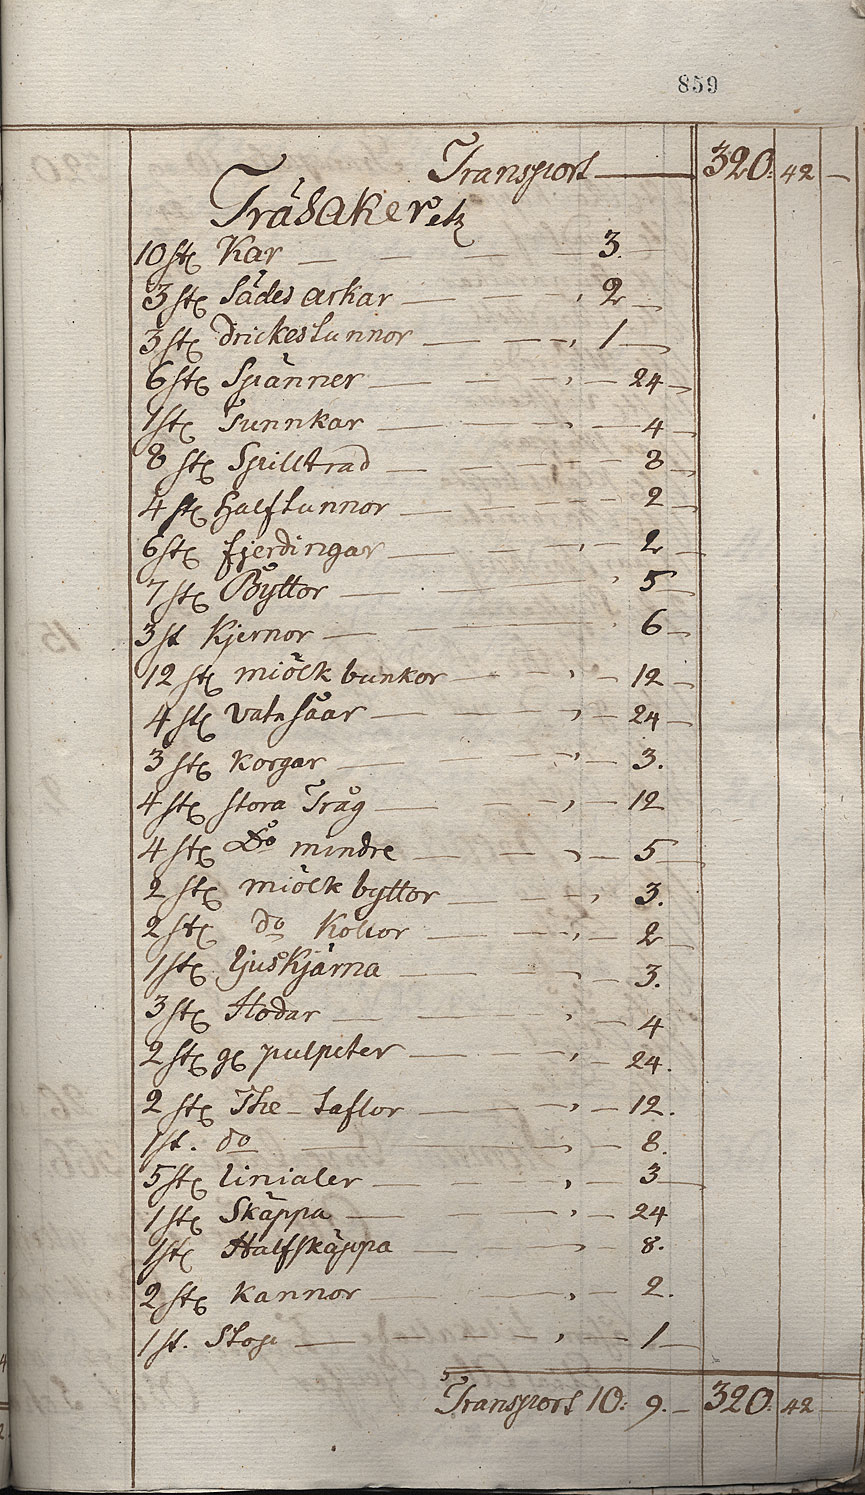 859
Transport — 320: 42 —
Träsaker etz
10 stz Kar — — — — 3. —
3 stz Sädes arkar — — — , 2 —
3 stz drickestunnor — — — , 1 —
6 stz Spänner — — — , — 24 —
1 stz Tunnkar — — — — 4 —
8 stz Spilltrad — — — — 8 —
4 stz halftunnor — — — — 2 —
6 stz fjerdingar — — — , — 2 —
7 stz Byttor — — — , 5 —
3 st Kjernor — — — , 6 —
12 stz miölk bunkor — — — , — 12 —
4 stz vatnsåar — — — , — 24 —
3 stz Korgar — — — , — 3.
4 stz stora Tråg — — — , — 12
4 stz Do mindre — — — , — 5 —
2 stz miölk byttor — — — , — 3.
2 stz do Kollor — — — , — 2 —
1 stz ljuskjärna — — — , — 3.
3 stz Stodar — — — , — 4
2 stz gl pulpeter — — — , — 24.
2 stz The-taflor — — — , — 12.
1 st. do — — — , — 8.
5 stz linialer — — — , — 3 —
1 stz Skäppa — — — , — 24
1 stz Halfskäppa — — — , — 8.
2 stz Kannor — — — , — 2.
1 st. Stop — — — , — 1 —
Transport 10: 9. — 320: 42